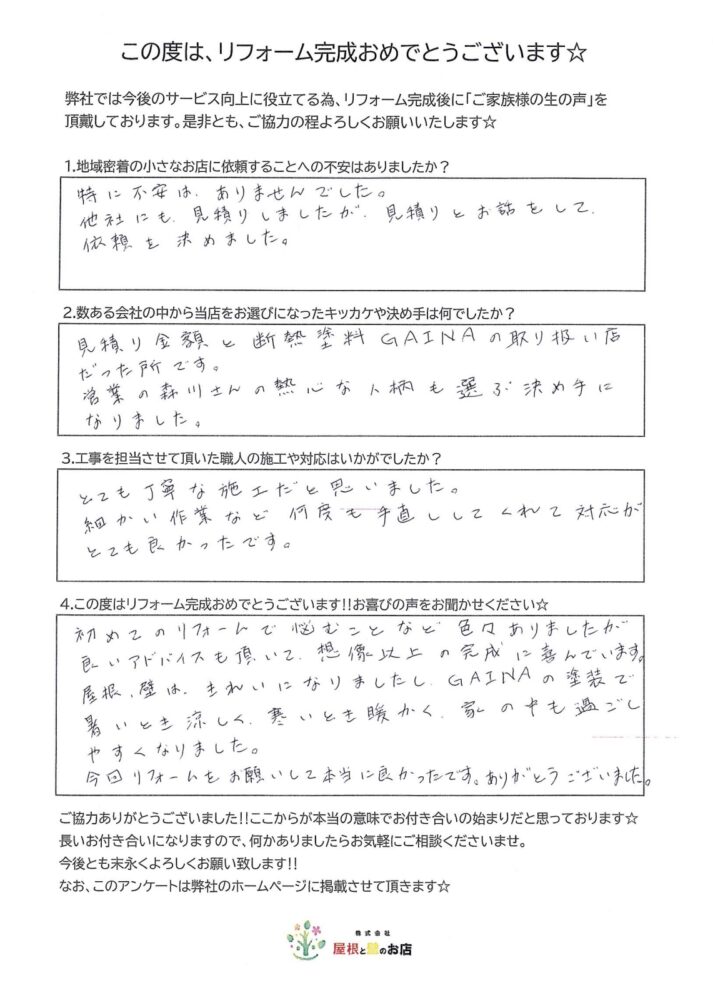 この度は、リフォーム完成おめでとうございます☆
弊社では今後のサービス向上に役立てる為、リフォーム完成後に「ご家族様の生の声」を
頂戴しております。是非とも、ご協力の程よろしくお願いいたします☆
1.地域密着の小さなお店に依頼することへの不安はありましたか？
特に不安は、ありませんでした。
他社にも、見積りしましたが、見積りとお話をして、
依頼を決めました。
2.数ある会社の中から当店をお選びになったキッカケや決め手は何でしたか？
見積り金額と断熱塗料GAINAの取り扱い店
だった所です。
営業の森川さんの熱心な人柄も選ぶ決め手に
なりました。
3.工事を担当させて頂いた職人の施工や対応はいかがでしたか？
とても丁寧な施工だと思いました。
細かい作業など何度も手直ししてくれて対応が
とても良かったです。
4.この度はリフォーム完成おめでとうございます!!お喜びの声をお聞かせください☆
初めてのリフォームで悩むことなど色々ありましたが
良いアドバイスも頂いて、想像以上の完成に喜んでいます。
屋根、壁は、きれいになりましたし、GAINAの塗装で
暑いとき涼しく、寒いとき暖かく、家の中も過ごし
やすくなりました。
今回リフォームをお願いして本当に良かったです。ありがとうございました。
ご協力ありがとうございました!!ここからが本当の意味でお付き合いの始まりだと思っております☆
長いお付き合いになりますので、何かありましたらお気軽にご相談くださいませ。
今後とも末永くよろしくお願い致します!!
なお、このアンケートは弊社のホームページに掲載させて頂きます☆
株式会社
屋根と壁のお店